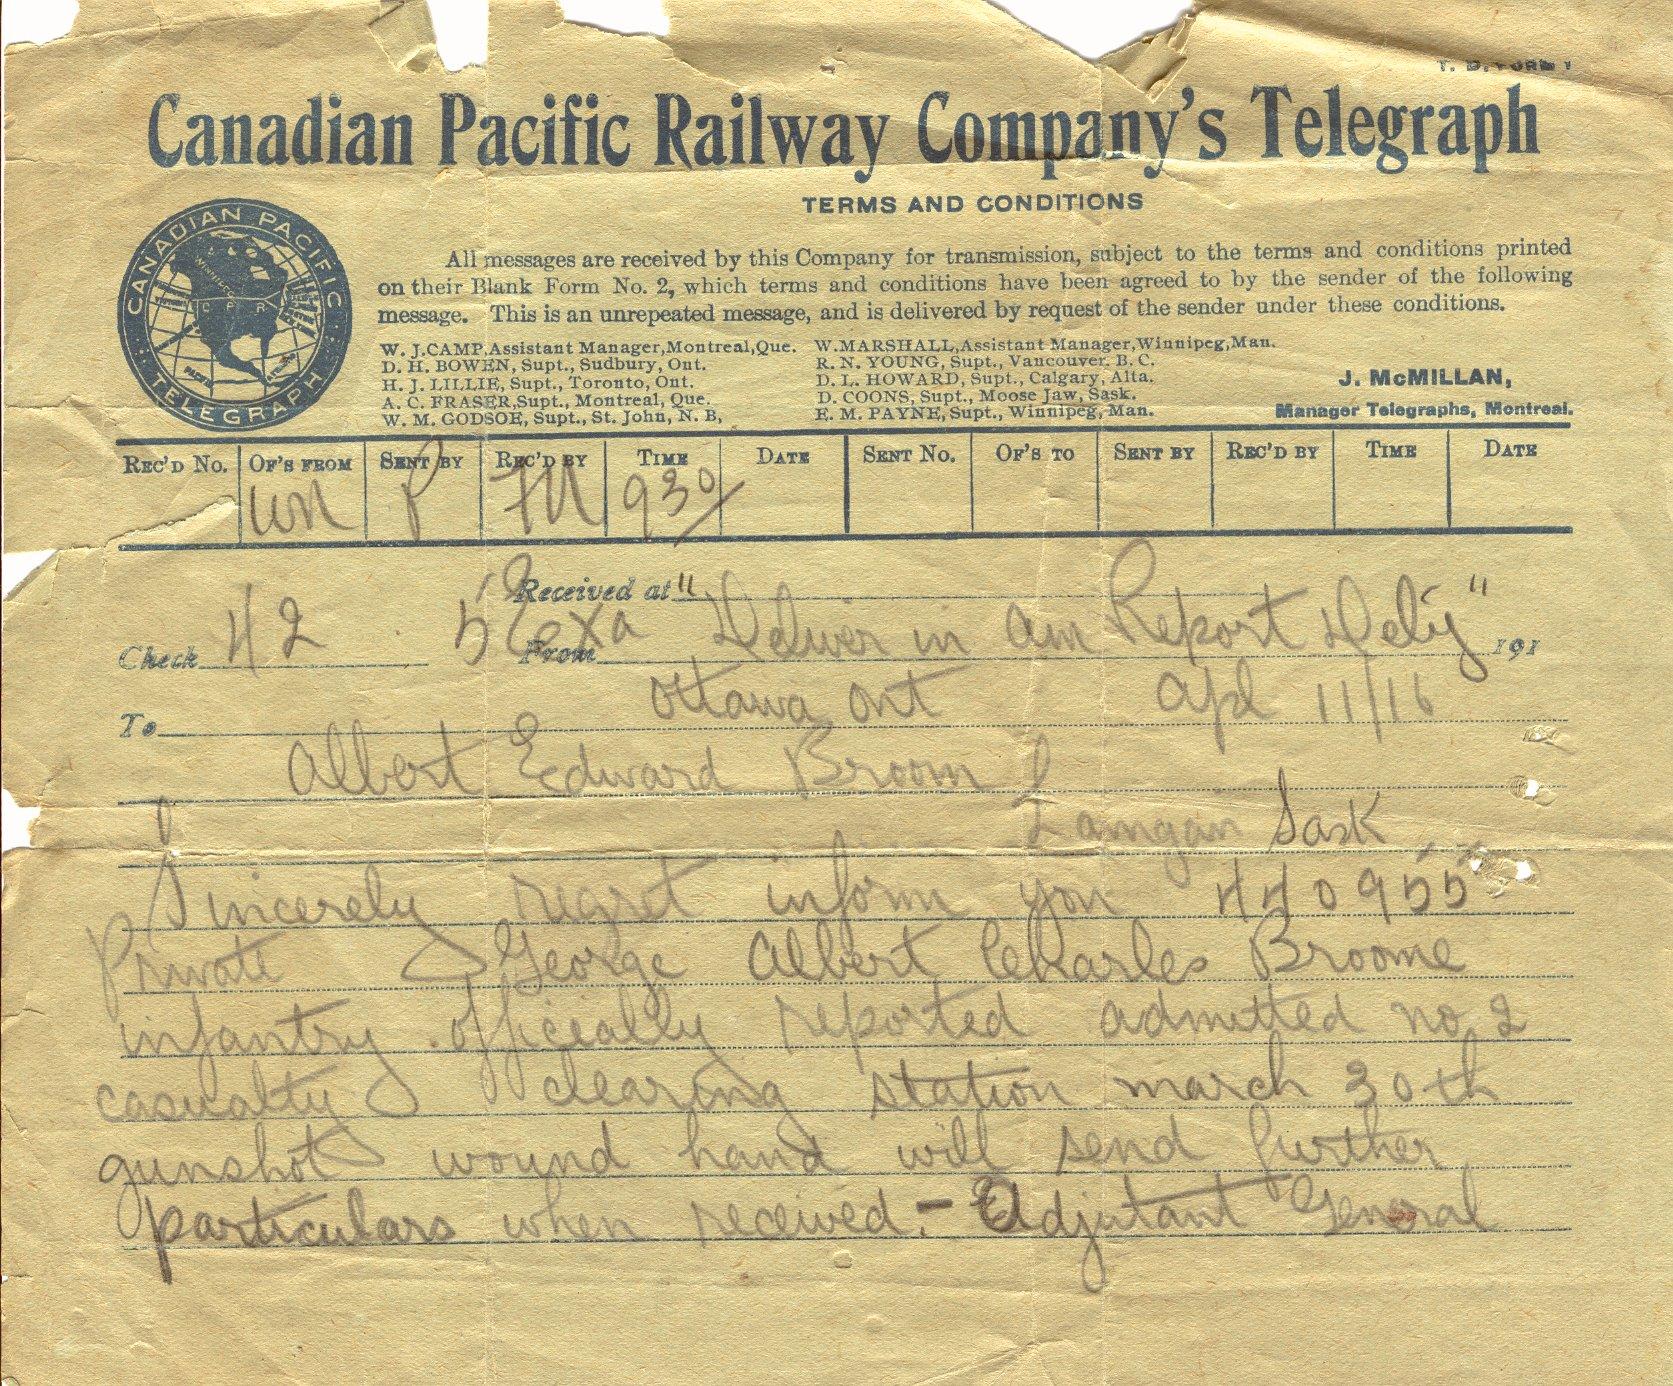 T. D. FORM 1
Canadian Pacific Railway Company's Telegraph
TERMS AND CONDITIONS
CANADIAN PACIFIC
WINNIPEG
C P R
TELEGRAPH
All messages are received by this Company for transmission, subject to the terms and conditions printed
on their Blank Form No. 2, which terms and conditions have been agreed to by the sender of the following
message. This is an unrepeated message, and is delivered by request of the sender under these conditions.
W. J. CAMP, Assistant Manager, Montreal, Que.
D. H. BOWEN, Supt., Sudbury, Ont.
H. J. LILLIE, Supt., Toronto, Ont.
A. C. FRASER, Supt., Montreal, Que.
W. M. GODSOE, Supt., St. John, N. B,
W. MARSHALL, Assistant Manager, Winnipeg, Man.
R. N. YOUNG, Supt., Vancouver. B. C.
D. L. HOWARD, Supt., Calgary, Alta.
D. COONS, Supt., Moose Jaw, Sask.
E. M. PAYNE, Supt., Winnipeg, Man.
J. McMILLAN,
Manager Telegraphs, Montreal.
REC'D No. OF'S FROM SENT BY REC'D BY TIME DATE SENT No. OF'S TO SENT BY REC'D BY TIME DATE
un P 930
Received at
Check 42 Exa From "Deliver in am Report Dely" 191
Ottawa Ont Apl 11/16
To
Albert Edward Broom
Lanigan Sask
Sincerely regret inform you 440955
Private George Albert Charles Broome
infantry officially reported admitted no 2
casualty clearing station march 30th
gunshot wound hand will send further
particulars when received. - Adjutant General